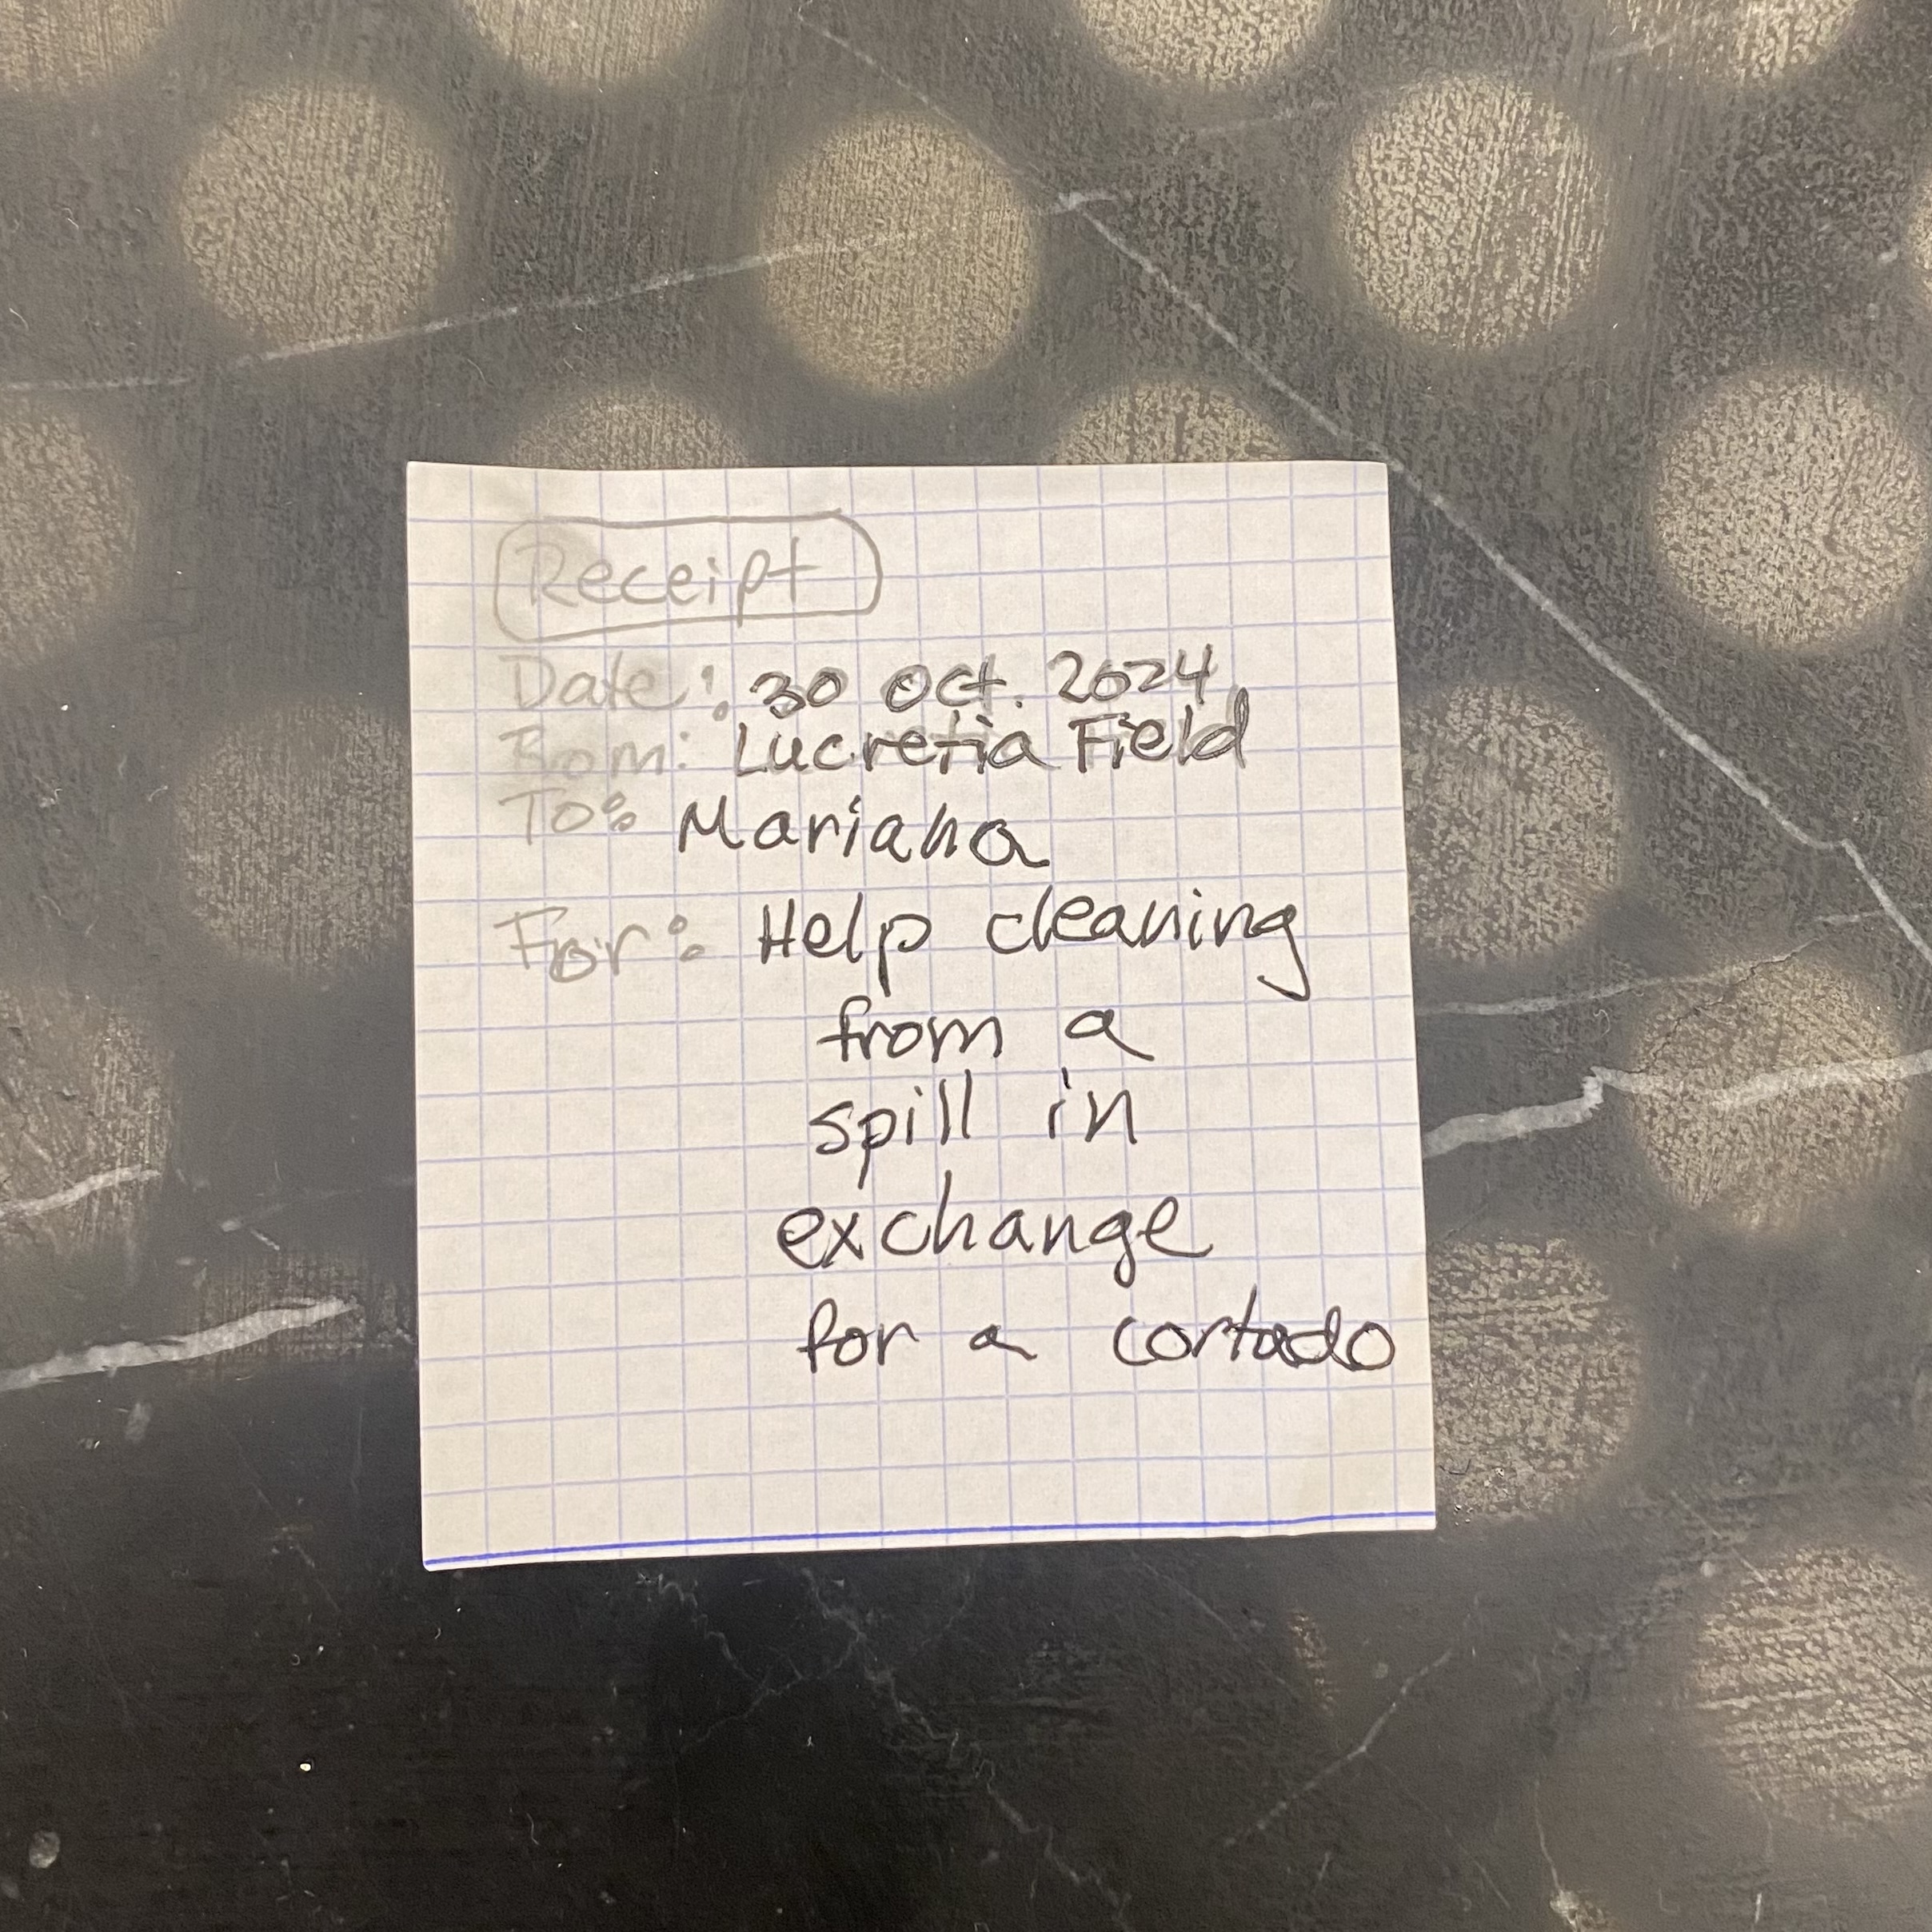 Receipt
Date: 30 Oct. 2024
From: Lucretia Field
To: Mariana
For: Help cleaning
from a
spill in
exchange
for a cortado